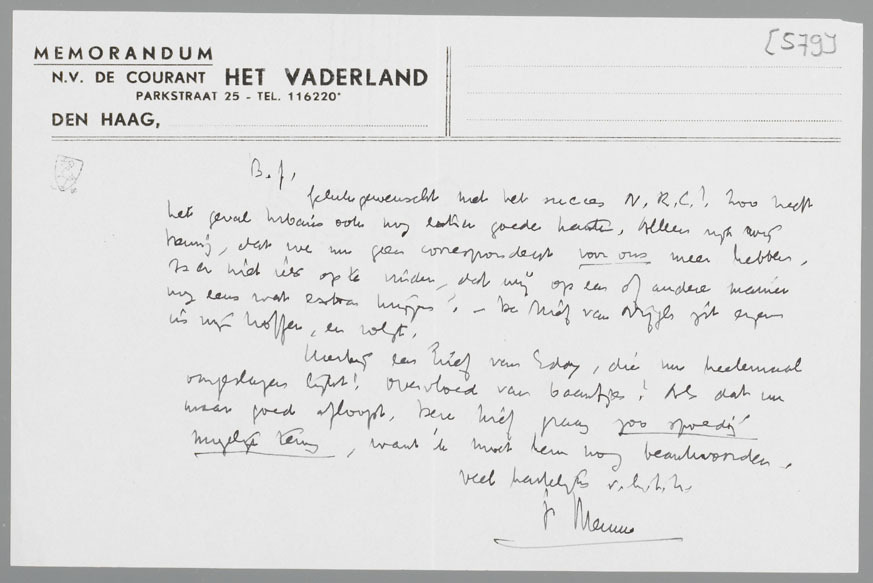 [579]
MEMORANDUM
N.V. DE COURANT HET VADERLAND
PARKSTRAAT 25 - TEL. 116220*
DEN HAAG,
B. J.,
gelukgewenscht met het succes N. R. C.! Zoo heeft
het geval Urbanis ook nog extra goede kanten. Alleen
, dat we nu geen correspondent voor ons meer hebben.
Is er niet iets op te vinden, dat wij op een of andere manier
nog eens wat extras krijgen? – De brief van Nijgh zit ergens
in mijn koffer, en volgt.
Hierbij een brief van Eddy, die nu heelemaal
omgeslagen lijkt! Overvloed van baantjes! Als dat nu
maar goed afloopt. Deze brief graag zoo spoedig
mogelijk terug, want ik moet hem nog beantwoorden.
veel hartelijks v. h. t. h.
je Menno